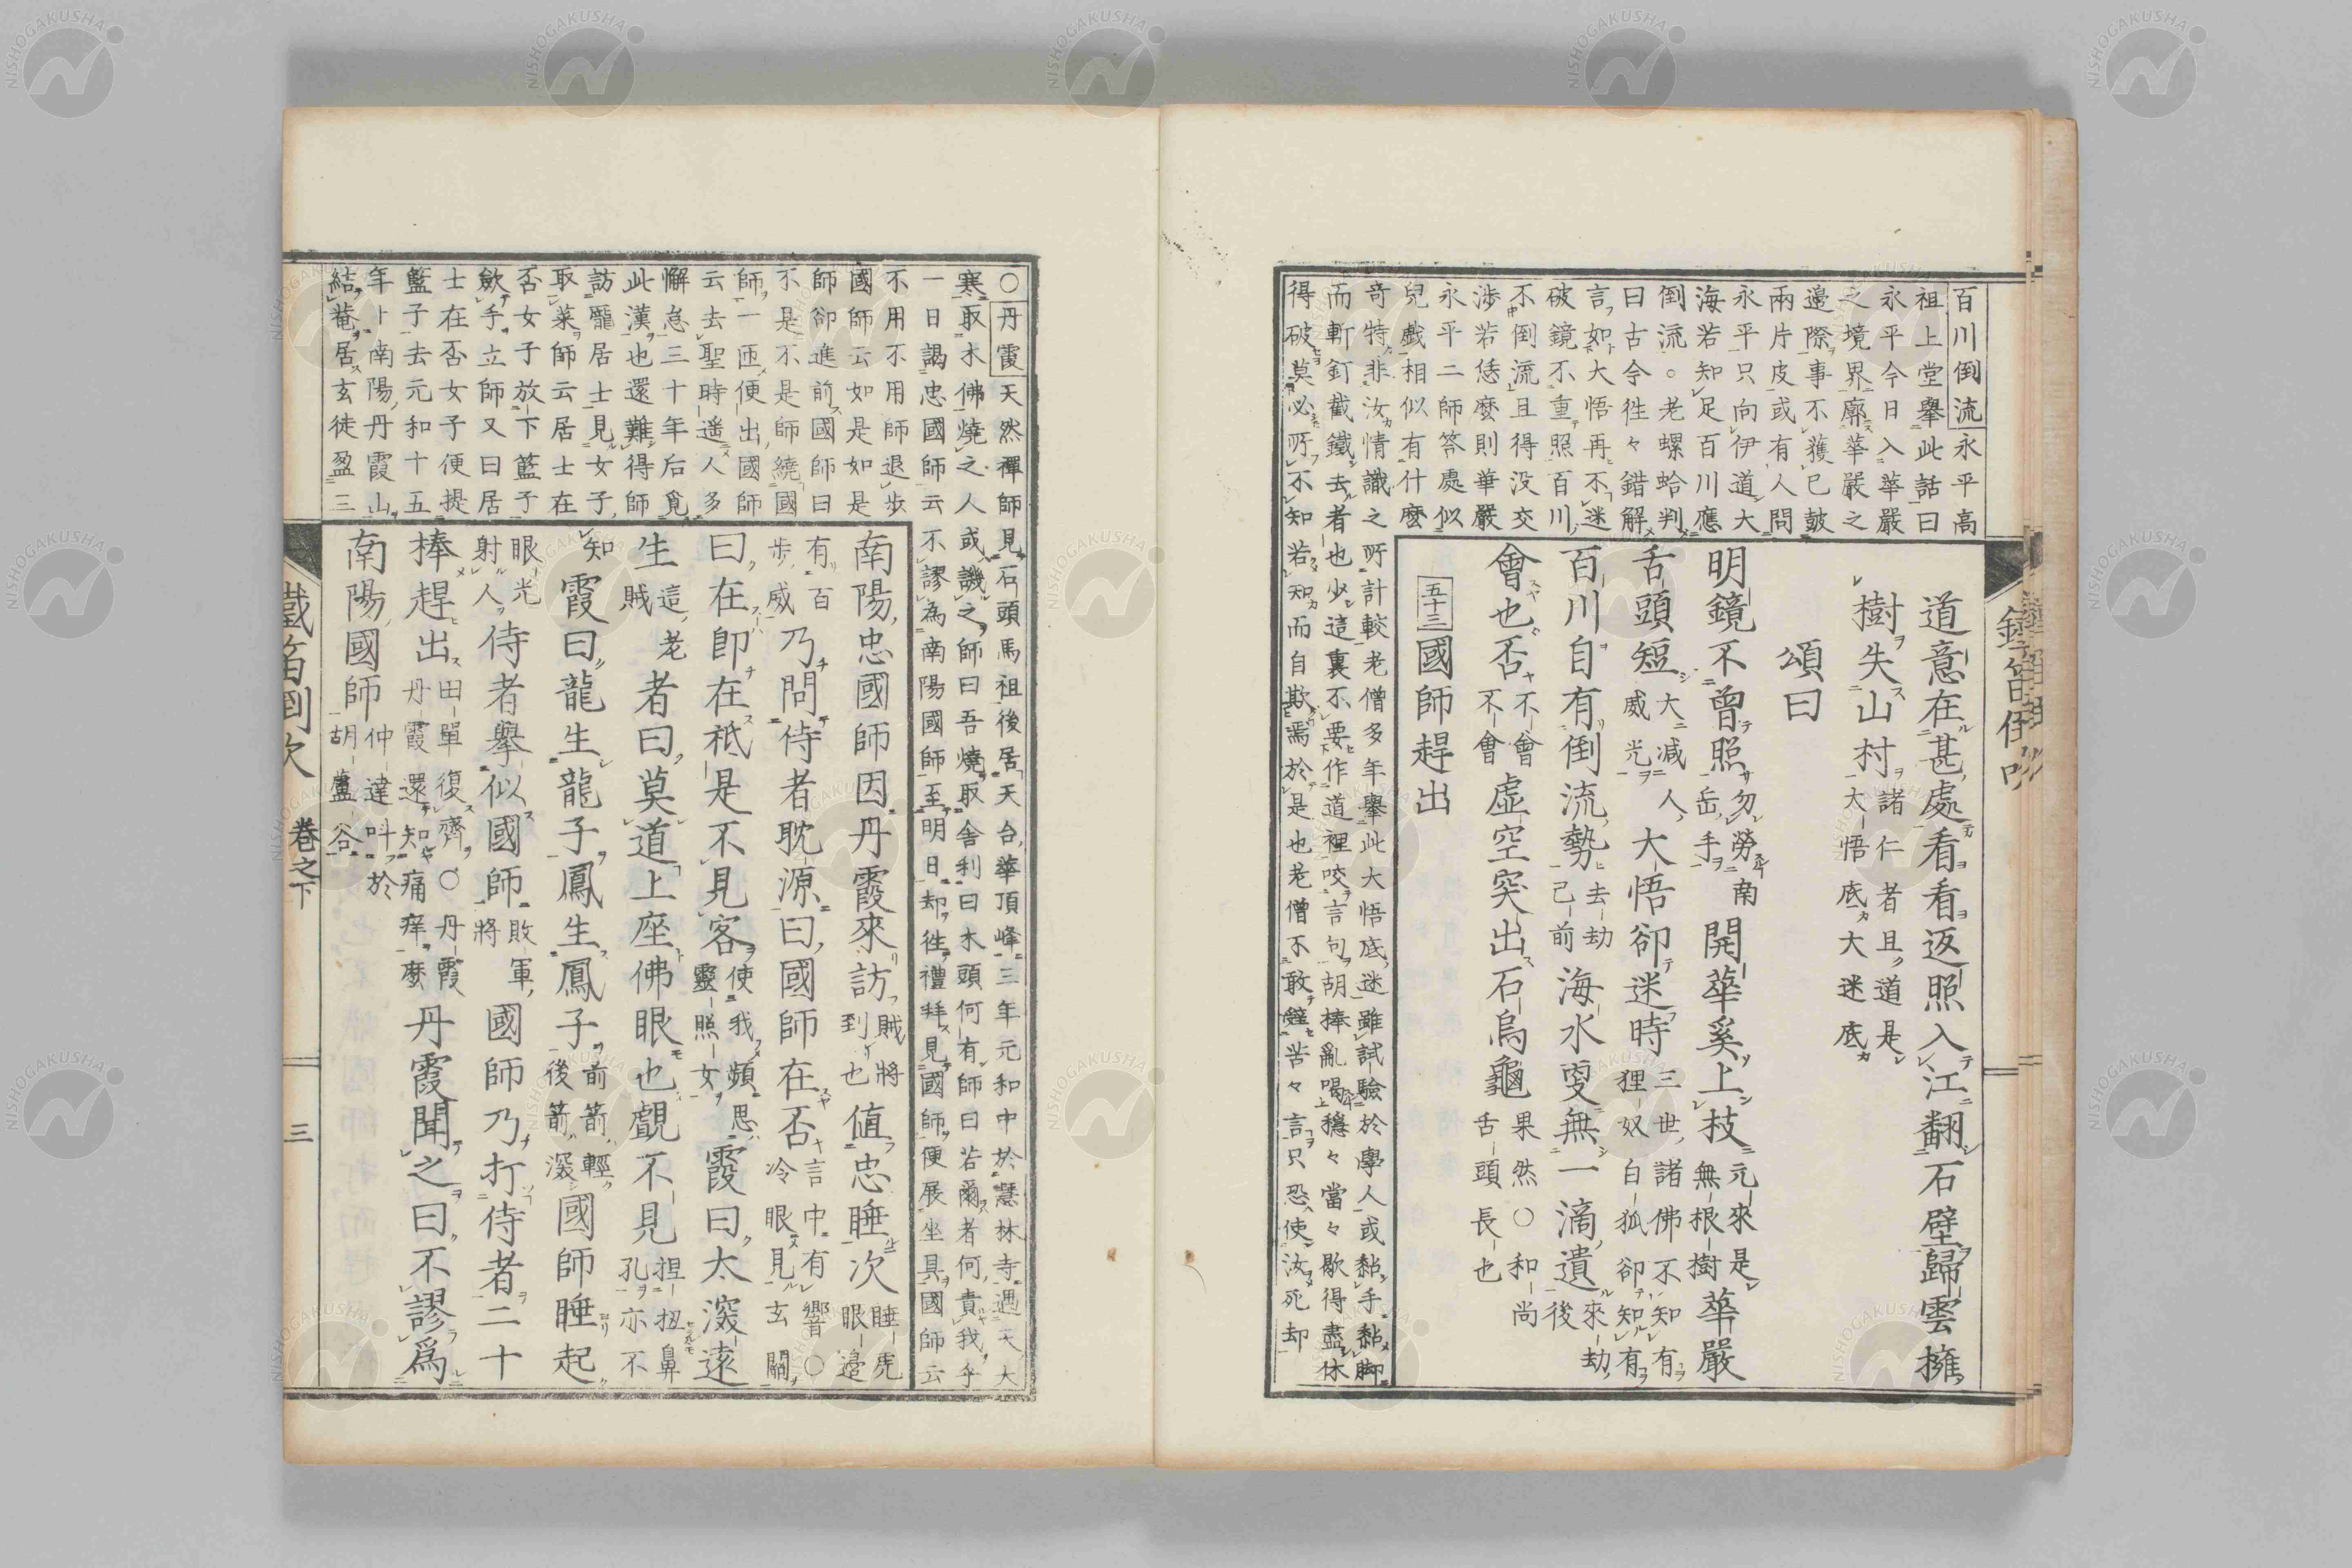 百川倒流永平高
祖上堂擧此話曰
永平今日入華嚴
之境界廓華嚴之
邊際事不獲已皷
兩片皮或有人問
永平只向伊道大
海若知足百川應
倒流。老螺蛤判
曰古今徃々錯解
言如大悟再不迷
破鏡不重照百川
不倒流且得没交
渉若恁麼則華嚴
永平二師答處似
兒戯相似有什麼
奇特非汝情識之所計較老僧多年擧此大悟底迷雖試驗於學人或黏手黏脚
而斬釘截鐵去者也少這裏不要作道裡咬言句胡捧亂喝穩々當々歇得盡休
得破莫必所不知若知而自欺焉於是也老僧不敢苦々言只恐使汝死却
道意在甚處看看返照入江翻石壁歸雲擁
樹失山村諸仁者且道是大悟底大迷底
頌曰
明鏡不曾照勿勞南岳手開華奚上枝元來是無根樹華嚴
舌頭短大減人威光大悟卻迷時三世諸佛不知有狸奴白狐卻知有
百川自有倒流勢去劫已前海水叓無一滴遺來劫後
會也否不會不會虚空突出石烏龜果然○和尚舌頭長也
五十三國師趕出
○丹霞天然禪師見石頭馬祖後居天台華頂峰三年元和中於慧林寺遇天大
寒取木佛燒之人或譏之師曰吾燒取舎利曰木頭何有師曰若爾者何責我乎
一日謁忠國師云不謬為南陽國師至明日却徃禮拜見國師便展坐具國師云
不用不用師退歩
國師云如是如是
師卻進前國師曰
不是不是師繞國
師一匝便出國師
云去聖時遥人多
懈怠三十年后覓
此漢也還難得師
訪龐居士見女子
取菜師云居士在
否女子放下籃子
斂手立師又曰居
士在否女子便提
籃子去元和十五
年卜南陽丹霞山
結菴居玄徒盈三
南陽忠國師因丹霞來訪賊將到也値忠睡次睡虎眼邉
有百歩威乃問侍者耽源曰國師在否言中有響○冷眼見玄關
曰在卽在祗是不見客使我頻思靈照女霞曰太深遠
生這老賊者曰莫道上座佛眼也覰不見捏扭鼻孔亦不
知霞曰龍生龍子鳳生鳳子前箭輕後箭深國師睡起
眼光射人侍者擧似國師敗軍將國師乃打侍者二十
棒趕出田單復齊○丹霞丹霞還知痛痒麼丹霞聞之曰不謬爲
南陽國師仲達呌於胡蘆谷
鐵笛倒吹 卷之下 三